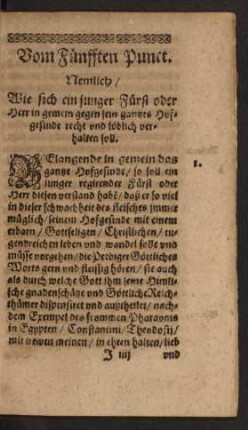 Vom Fünfften Punct.
Nemlich/
Wie sich ein junger Fürst oder
Herr in gemein gegen sein gantzes Hof-
gesinde recht vnd löblich ver-
halten soll.
BElangende in gemein das
1.
gantze Hofgesinde/ so soll ein
junger regirender Fürst oder
Herr diesen verstand habẽ/ daß er so viel
in dieser schwacheit des fleisches jmmer
müglich/ seinem Hofgesinde mit einem
erbarn/ Gottseligen/ Christlichen/ tu-
gendreichen leben vnd wandel solle vnd
müsse vorgehen/ die Prediger Göttliches
Worts gern vnd fleissig hören/ sie auch
als durch welche Gott jhm seine Himli-
sche gnadenschätze vnd Göttliche Reich-
thümer dispensiret vnd außtheilet/ nach
dem Exempel des frommen Pharaonis
in Egypten/ Constantini/ Theodosij/
mit trewen meinen/ in ehren halten/ lieb
J iiij
vnd